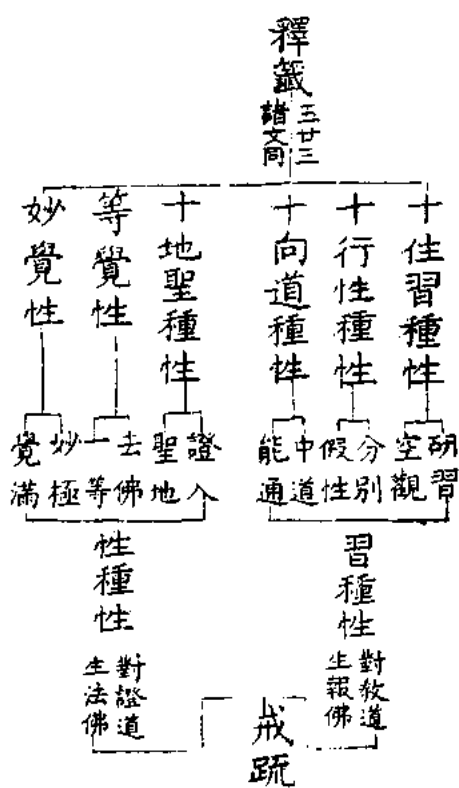 釋籤
三廿三
諸文同
十住習種性
十行性種性
十向道種性
十地聖種性
等覺性
妙覺性
研習
空觀
分別
假性
中道
能通
證入
聖地
去佛
一等
妙極
覺滿
習種性
對教道
生報佛
性種性
對證道
生法佛
戒疏